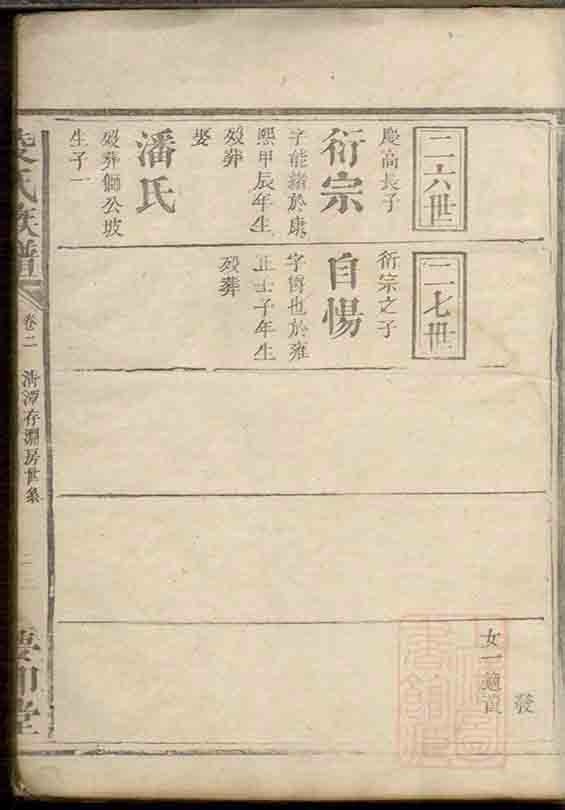 二六世
慶高長子
衍宗
字能緒於康
熙甲辰年生
歿葬
娶
潘氏
歿葬獅公坡
生子一
二七世
衍宗之子
自惕
字惰也於雍
正壬子年生
歿葬
發
女一適黃
氏族譜
卷二
清潭存淵房世系
二